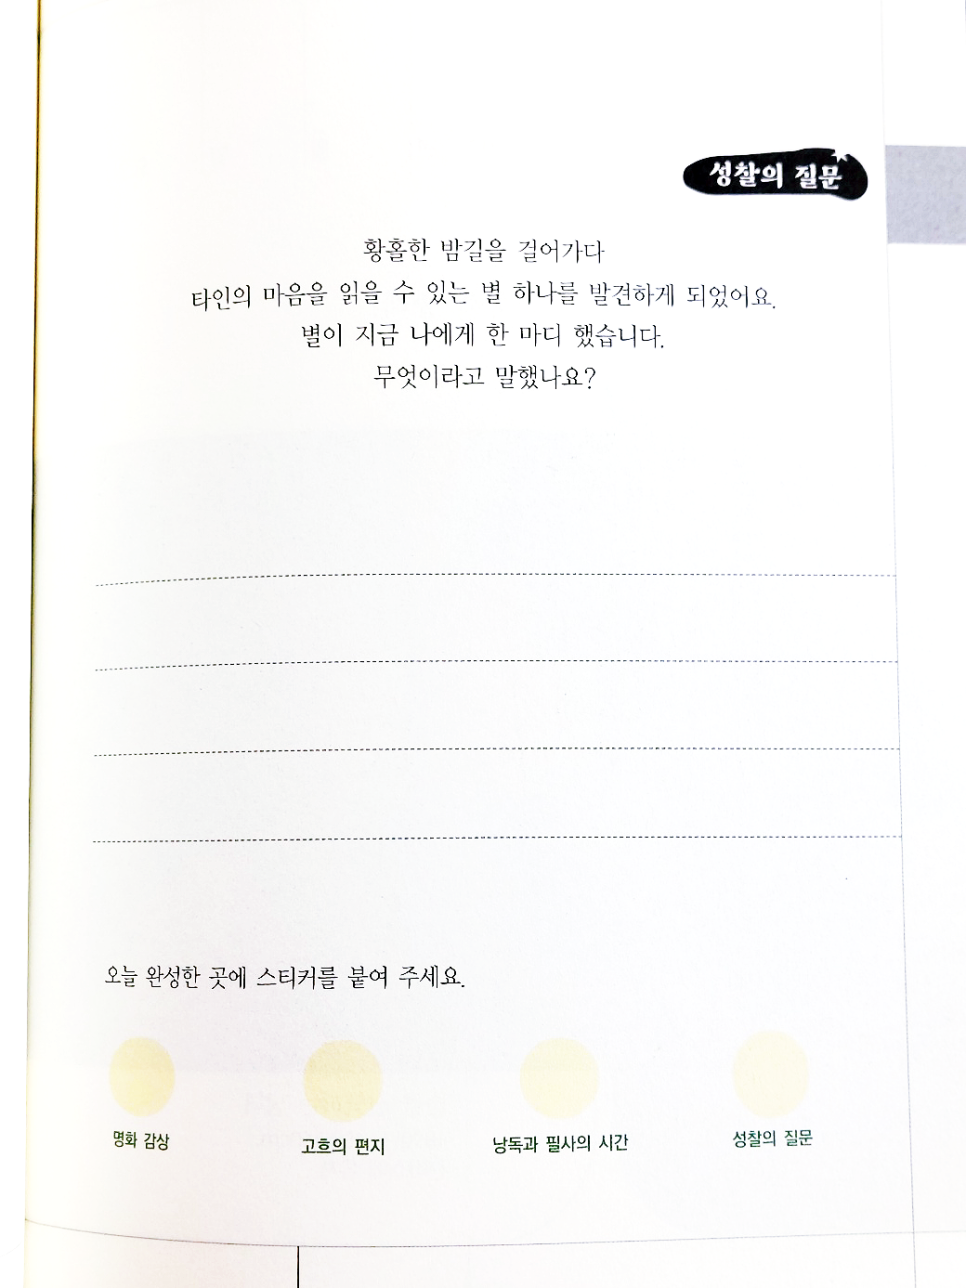 성찰의 질문
황홀한 밤길을 걸어가다
타인의 마음을 읽을 수 있는 별 하나를 발견하게 되었어요.
별이 지금 나에게 한 마디 했습니다.
무엇이라고 말했나요?
오늘 완성한 곳에 스티커를 붙여 주세요.
명화 감상
고흐의 편지
낭독과 필사의 시간
성찰의 질문